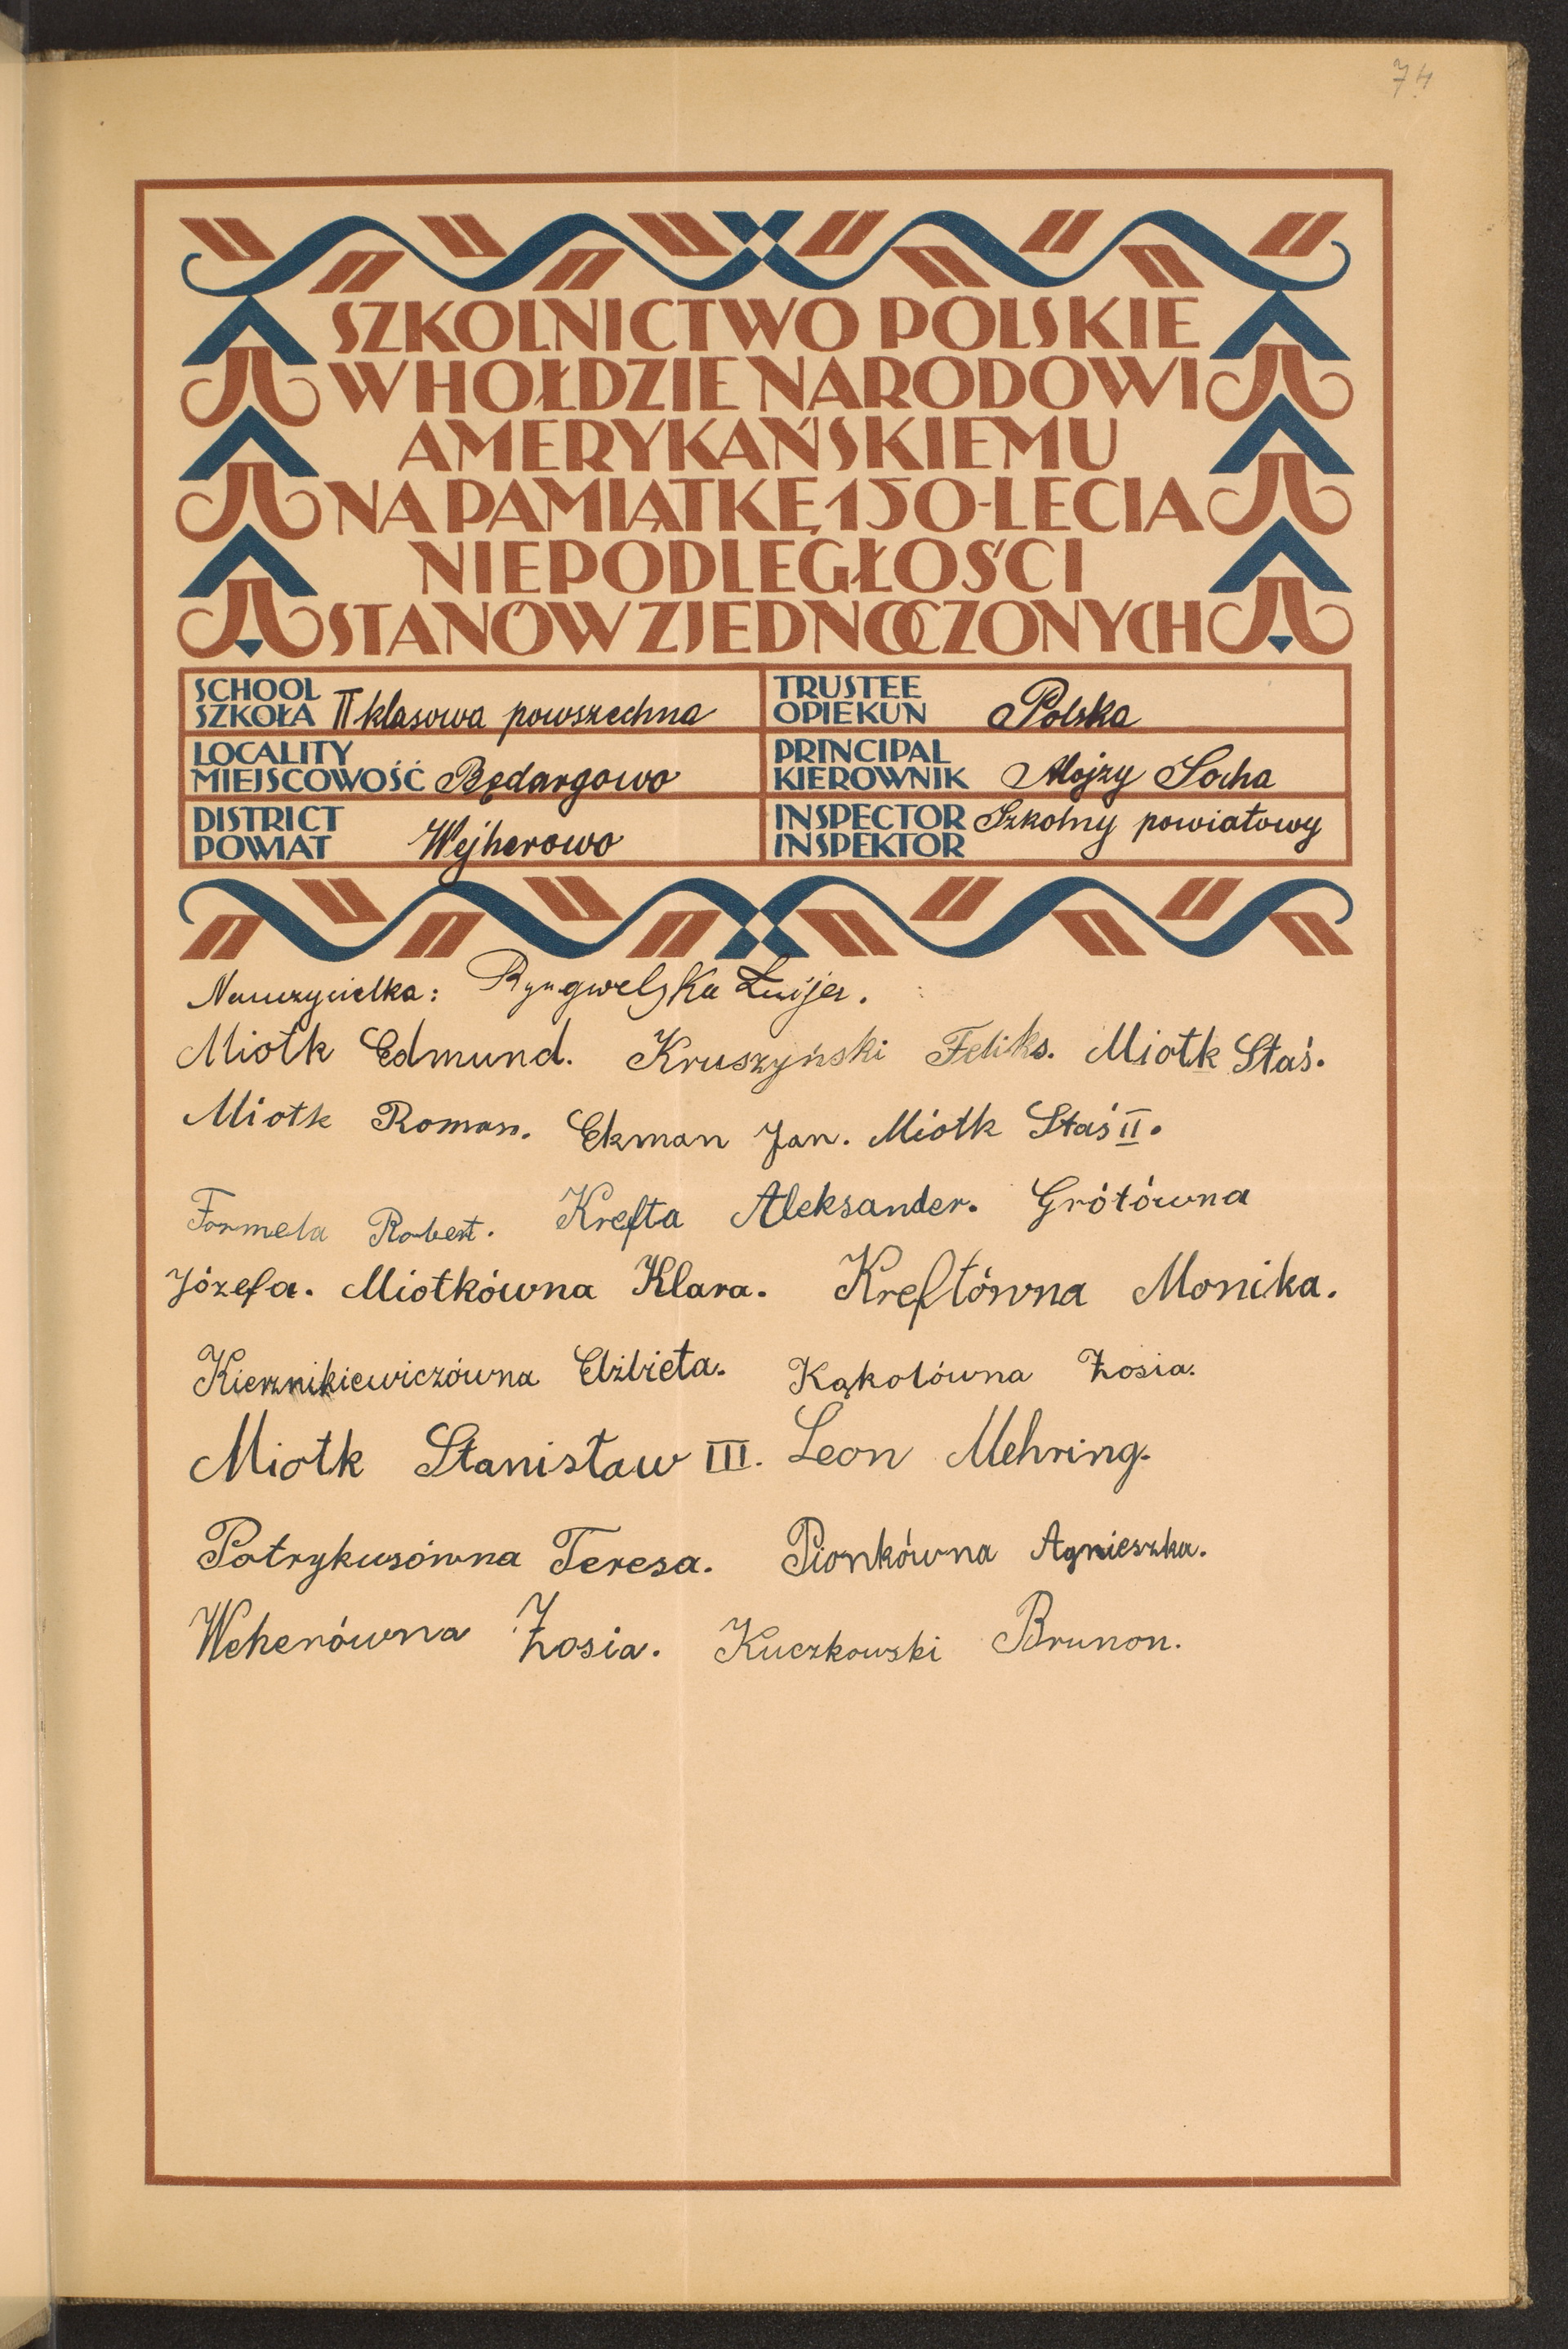 74
SZKOLNICTWO POLSKIE
W HOŁDZIE NARODOWI
AMERYKAŃSKIEMU
NA PAMIĄTKĘ 150-LECIA
NIEPODLEGŁOŚCI
STANÓW ZJEDNOCZONYCH
SCHOOL
SZKOŁA II klasowa powszechna
TRUSTEE
OPIEKUN Polska
LOCALITY
MIEJSCOWOŚĆ Będargowo
PRINCIPAL
KIEROWNIK Alojzy Socha
DISTRICT
POWIAT Wejherowo
INSPECTOR Szkolny powiatowy
INSPEKTOR
Nauczycielka: Ryngwelska Luija.
Miotk Edmund. Kruszyński Feliks. Miotk Staś.
Miotk Roman. Ekman Jan. Miotk Staś II.
Formela Robert. Krefta Aleksander. Grótówna
Józefa. Miotkówna Klara. Kreftówna Monika.
Kiernikiewiczówna Elżbieta. Kąkolówna Zosia.
Miotk Stanisław III. Leon Mehring.
Potrykusówna Teresa. Pionkówna Agnieszka.
Weherówna Zosia. Kuczkowski Brunon.